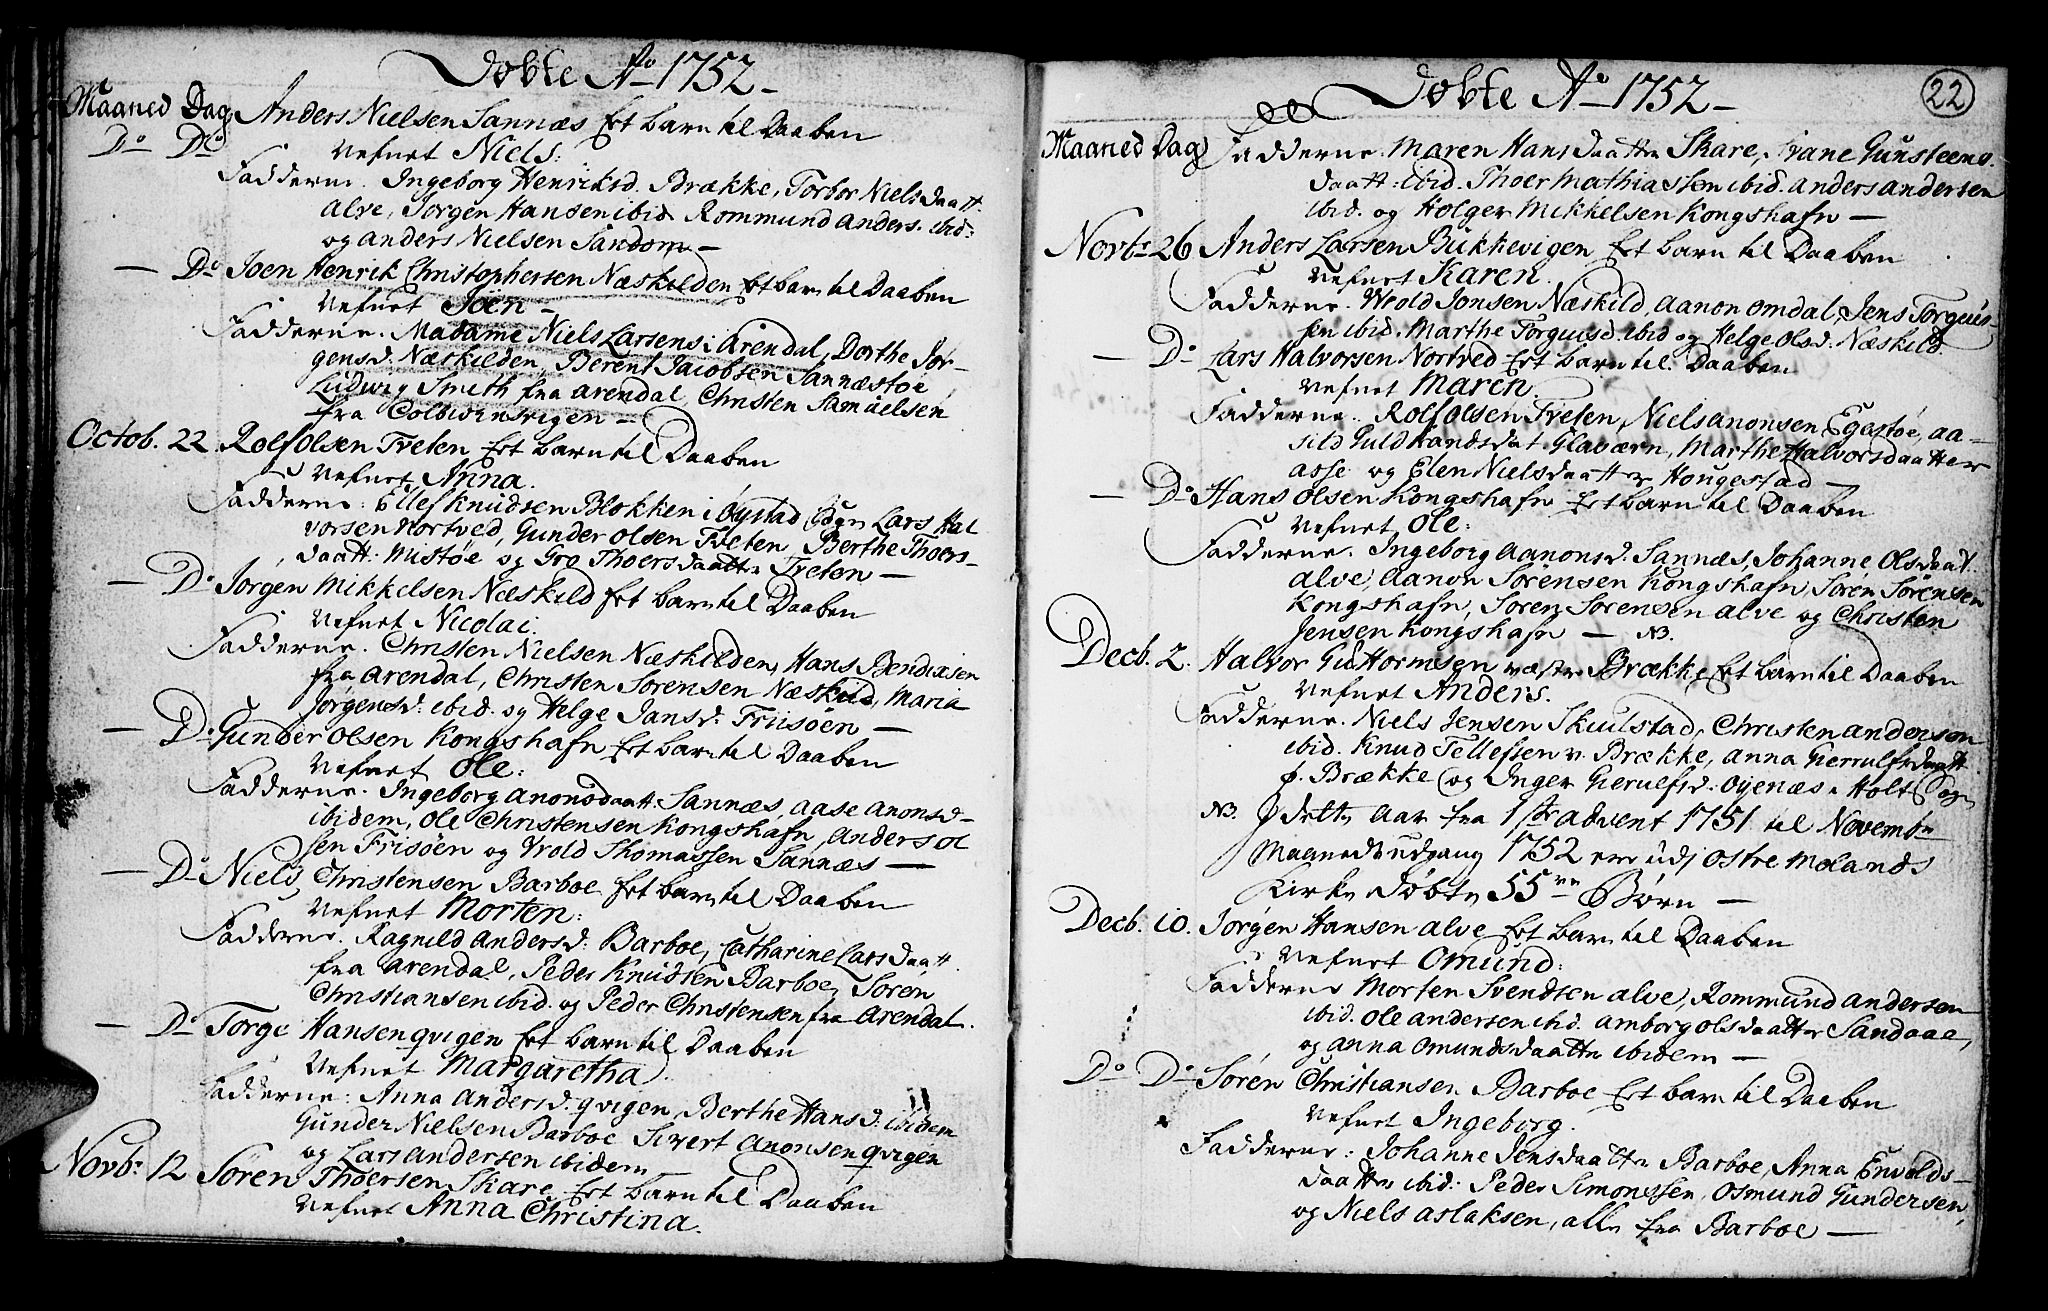 Döbte Ao 1752
Maaned Dag Anders Nielsen Sannæs Et barn til Daaben
Do Do nefnet Niels:
Fadderne. Ingeborg Henriksd. Brække, Torbor Nielsdaatt.
Alve, Jorgen Hansen ibid Rommund Anders. ibid:
og Anders Nielsen Sandom —
— Do Joen Henrik Christophersen Næskilden Et barn til Daaben
nefnet Joen —
Fadderne. Madame Niels Larsens i Arendal, Dorthe Jor-
gensd. Næskilden, Berent Jacobsen Sannæstøe
Ludwig Smith fra Arendal, Christen Samuelsen
fra Colbiønsvigen —
Octob. 22 Rolf Olsen Tveten Et barn til Daaben
nefnet Anna.
Fadderne: Ellef Knudsen Blokken i Öystad Sogn Lars Hal
vorsen Nortved, Gunder Olsen Tveten Berthe Thoers-
daatt: Mistøe og Gro Thoersdaatter Tveten —
— Do Jørgen Mikkelsen Næskild Et barn til Daaben
nefnet Nicolai.
Fadderne. Christen Nielsen Næskilden, Hans Bendixsen
fra Arendal, Christen Sørensen Næskild, Maria
Jørgensd. ibid. og Helge Jansd. Friisöen —
— Do Gunder Olsen Kongshafn Et barn til Daaben
nefnet Ole:
Fadderne. Ingeborg Anonsdaatt. Sannæs, Aase Anonsd-
ibidem, Ole Christensen Kongshafn, Anders Ol
sen Frisöen og Wold Thomassen Sannæs —
— Do Niels Christensen Barboe Et barn til Daaben
nefnet Morten:
Fadderne. Ragnild Andersd: Barboe, Catharine Larsdaatt.
fra Arendal, Peder Knudsen Barboe, Sørén
Christiansen ibid. og Peder Christensen fra Arendal.
— Do Torge Hansen qvigen Et barn til Daaben
nefnet Margaretha.
Fadderne: Anna Andersd. qvigen, Berthe Hansd: ibidem
Gunder Nielsen Barboe Sivert Anonsen qvigen
og Lars Andersen ibidem —
Novbr 12 Sören Thoersen Skare Et barn til Daaben
nefnet Anna Christina.
Döbte Ao 1752
22
Maaned Dag Fadderne. Maren Hansdaatter Skare, Trane Gunsteens.
daatt: ibid. Thoer Mathiassen ibid. Anders Andersen
ibid. og Holger Mikkelsen Kongshafn —
Novbr 26 Anders Larsen Bukkevigen Et barn til Daaben
nefnet Karen.
Fadderne. Wold Jonsen Næskild, Aanon Omdal, Jens Torgius-
sen ibid. Marthe Torguisd. ibid og Helge Olsd: Næskild
— Do Lars Halvorsen Nortved Et barn til Daaben
nefnet Maren.
Fadderne. Rolf Olsen Tveten, Niels Anonsen Egestøe, Aa-
sild Guldbrandsdat Glaværn, Marthe Halvorsdaatter
Asse og Elen Nielsdaatter Hougestad —
— Do Hans Olsen Kongshafn Et barn til Daaben
nefnet Ole:
Fadderne. Ingeborg Aanonsd. Sannæs, Johanne Olsdaat.
Alve, Aanon Sörensen Kongshafn, Sören Sörensen
Kongshafn, Sören Sörensen Alve og Christen
Jensen Kongshafn — NB.
Decb. 2. Halvor Guthormsen væster Brække, Et barn til Daaben
nefnet Anders.
Fadderne. Niels Jensen Skuulstad, Christen Andersen
ibid. Knud Tellefsen v. Brække, Anna Gerrulfsdaatt
f. Brække og Inger Gerulfsd. Oyenæs i Holt Sogn
NB. I dette Aar fra 1ste Advent 1751 til Novembr
Maaneds udgang 1752 ere udj Ostre Molands
Kirke Döbte 55ve Börn —
Decb. 10. Jorgen Hansen Alve Et barn til Daaben
nefnet Omund:
Fadderne Morten Svendsen Alve, Rommund Andersen
ibid. Ole Andersen ibid. Amborg Olsdaatter Sandaae,
og Anna Omundsdaatter ibidem —
Do Do Sören Christiansen Barboe Et barn til Daaben
nefnet Ingeborg.
Fadderne: Johanne Jensdaatter Barboe, Anna Envolds-
daatter ibid: Peder Simonssen, Osmund Gundersen,
og Niels Aslaksen, alle fra Barboe —